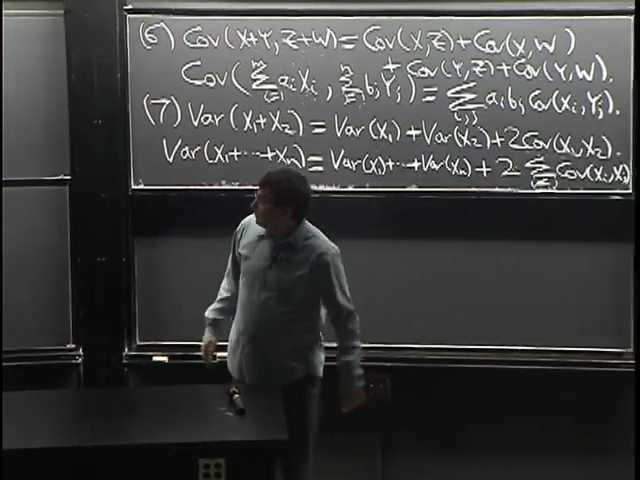 (6) Cov(X+Y, Z+W) = Cov(X,Z) + Cov(X,W)
+ Cov(Y,Z) + Cov(Y,W).
Cov(∑_{i=1}^{m} a_i X_i, ∑_{j=1}^{n} b_j Y_j) = ∑_{i,j} a_i b_j Cov(X_i, Y_j).
(7) Var(X_1+X_2) = Var(X_1) + Var(X_2) + 2Cov(X_1,X_2).
Var(X_1+⋯+X_n) = Var(X_1)+⋯+Var(X_n) + 2 ∑_{i<j} Cov(X_i,X_j)